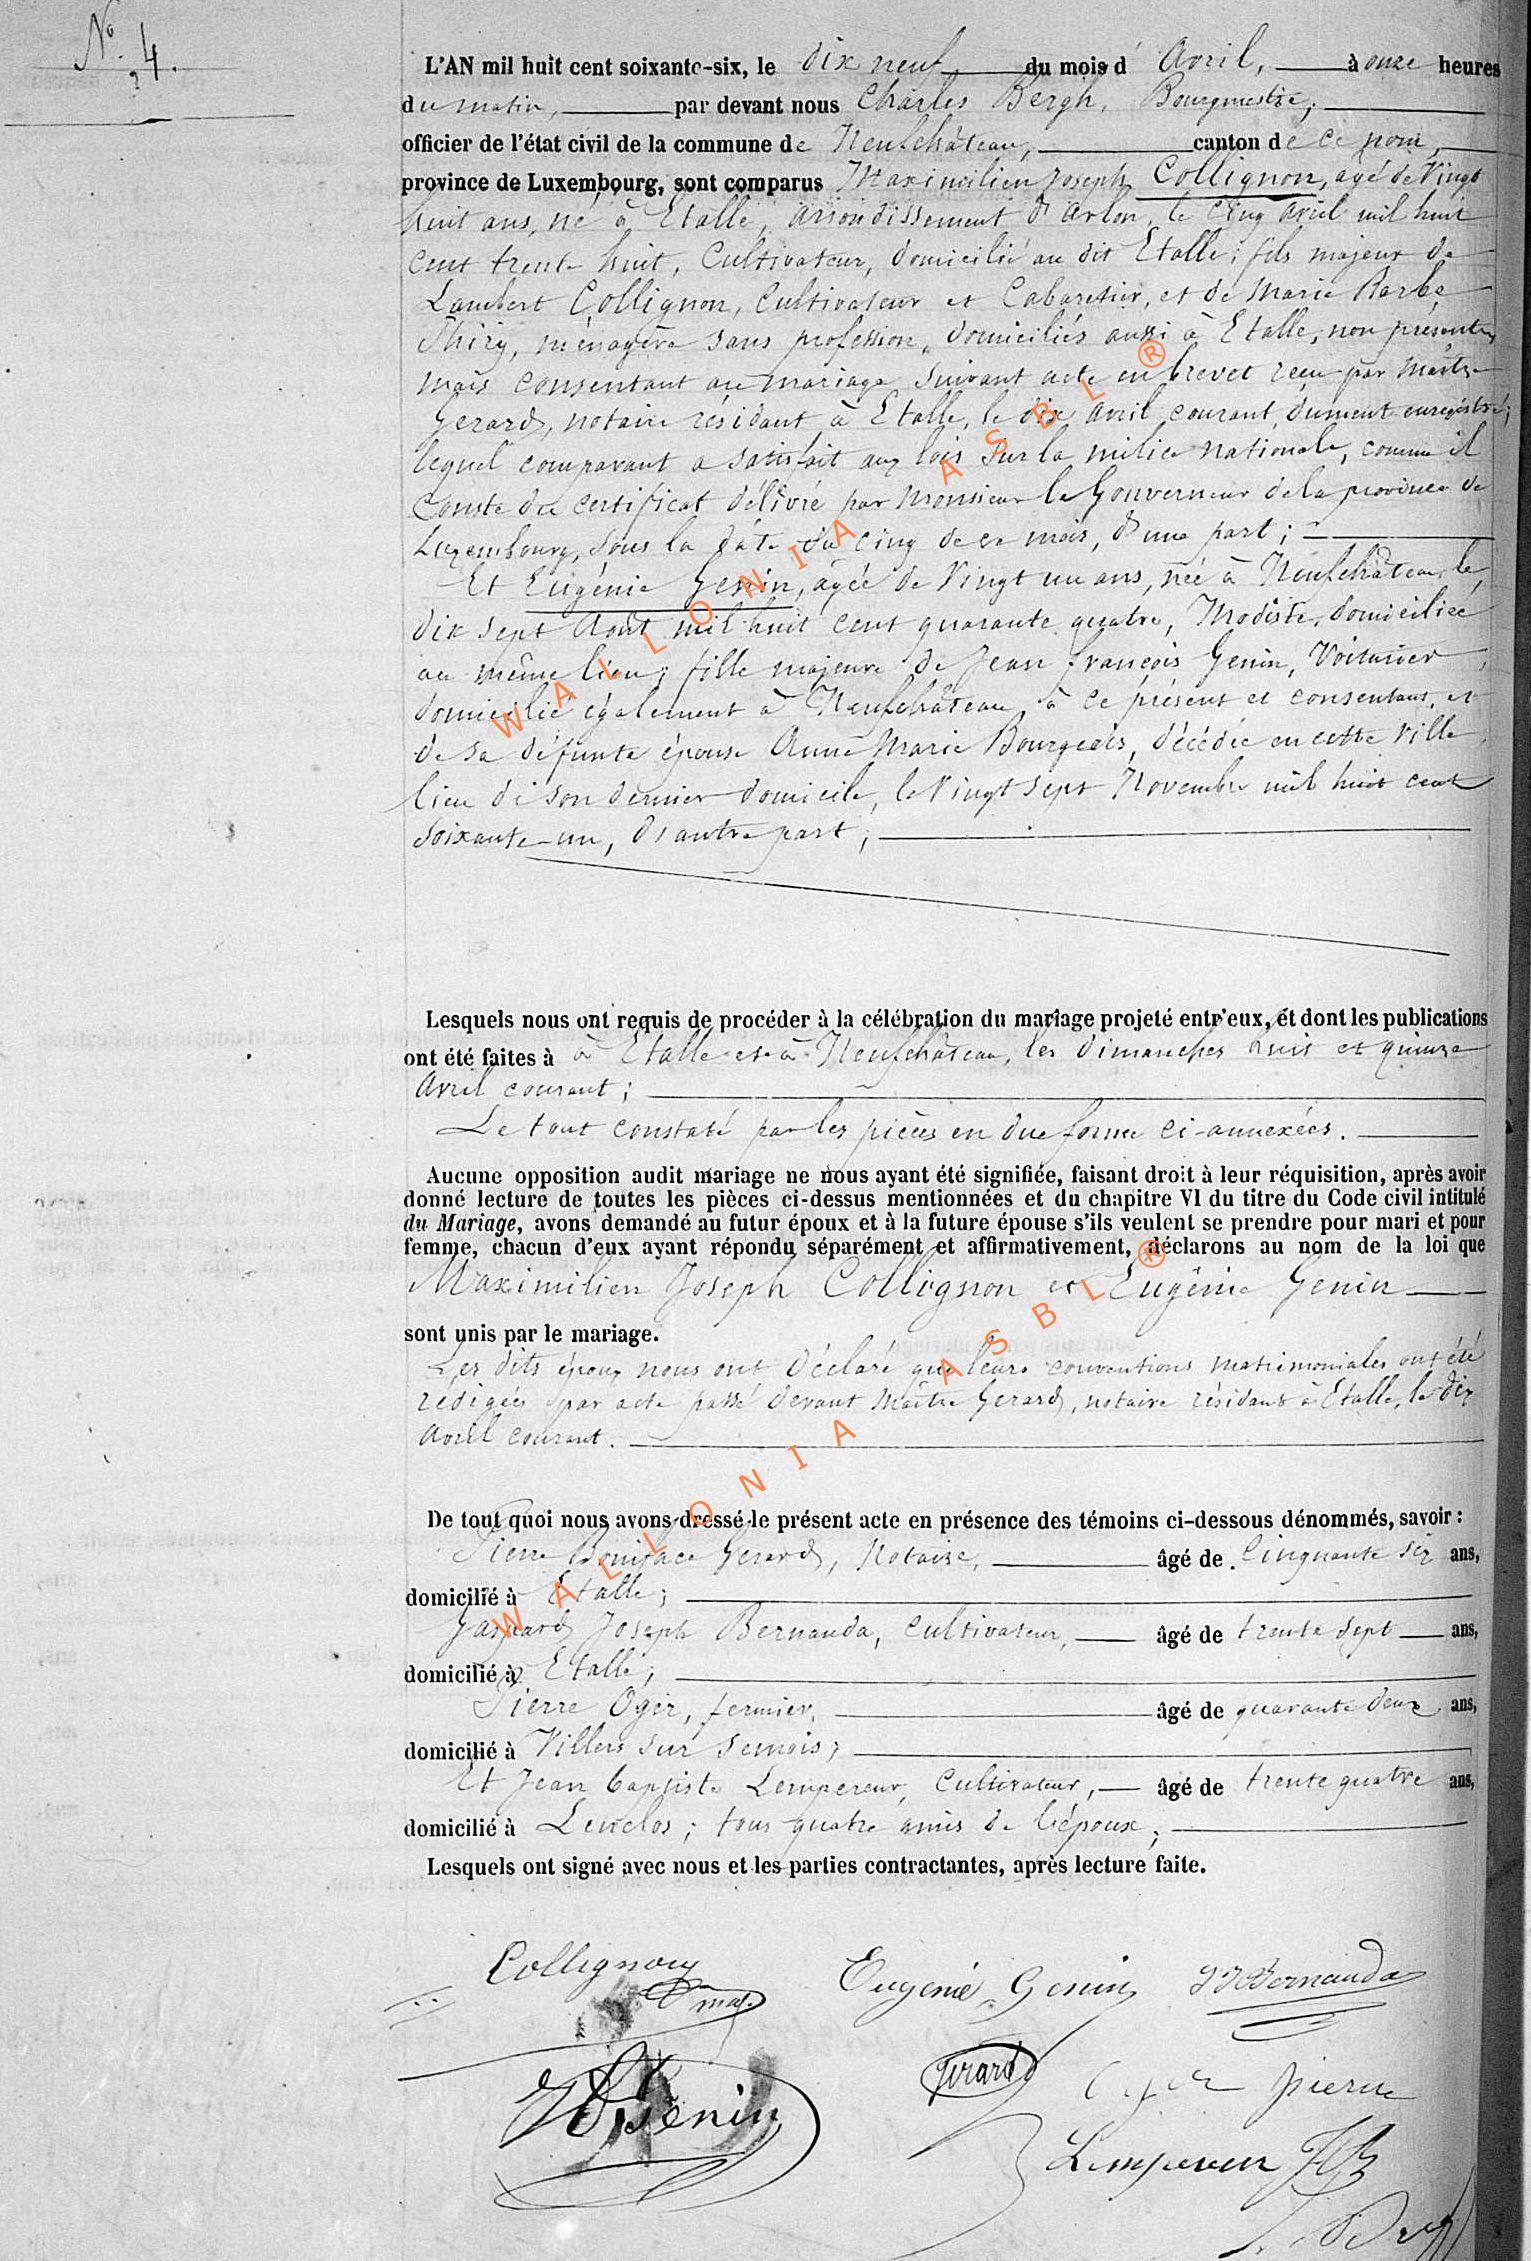 No. 4.
L'AN mil huit cent soixante-six, le dix neuf du mois d' Avril, à onze heures
du matin, par devant nous Charles Bergh, Bourgmestre,
officier de l'état civil de la commune de Neufchâteau, canton de ce nom,
province de Luxembourg, sont comparus Maximilien Joseph Collignon, agé de Vingt
huit ans, né à Etalle, arrondissement d'Arlon, le cinq avril mil huit
cent trente huit, Cultivateur, domicilié au dit Etalle; fils majeur de
Lambert Collignon, Cultivateur et Cabaretier, et de Marie Barbe
Thiry, ménagère sans profession, domiciliés aussi à Etalle, non présents
mais consentant au mariage suivant acte en brevet reçu par Maître
Gerard, notaire résidant à Etalle, le dix avril courant, dument enregistré;
lequel comparant a satisfait aux lois sur la milice nationale, comme il
conste du certificat délivré par Monsieur le Gouverneur de la province de
Luxembourg, sous la date du cinq de ce mois, d'une part;
Et Eugénie Genin, âgée de Vingt un ans, née à Neufchâteau, le
dix sept Août mil huit cent quarante quatre, Modiste, domiciliée
au même lieu; fille majeure de Jean françois Genin, Voiturier,
domicilié également à Neufchâteau, à ce présent et consentant, et
de sa défunte épouse Anne Marie Bourgeois, décédée en cette Ville,
lieu de son dernier domicile, le Vingt sept Novembre mil huit cent
soixante-un, d'autre part;
Lesquels nous ont requis de procéder à la célébration du mariage projeté entr'eux, et dont les publications
ont été faites à à Etalle et à Neufchâteau, les dimanches huit et quinze
Avril courant;
Le tout constaté par les pièces en due forme ci-annexées.
Aucune opposition audit mariage ne nous ayant été signifiée, faisant droit à leur réquisition, après avoir
donné lecture de toutes les pièces ci-dessus mentionnées et du chapitre VI du titre du Code civil intitulé
du Mariage, avons demandé au futur époux et à la future épouse s'ils veulent se prendre pour mari et pour
femme, chacun d'eux ayant répondu séparément et affirmativement, déclarons au nom de la loi que
Maximilien Joseph Collignon et Eugénie Genin
sont unis par le mariage.
Les dits époux nous ont déclaré que leurs conventions matrimoniales ont été
rédigées par acte passé devant Maître Gerard, notaire résidant à Etalle, le dix
avril courant.
De tout quoi nous avons dressé le présent acte en présence des témoins ci-dessous dénommés, savoir :
Pierre Boniface Gerard, Notaire, âgé de Cinquante six ans,
domicilié à Etalle;
Gaspard Joseph Bernanda, Cultivateur, âgé de trente sept ans,
domicilié à Etalle;
Pierre Oger, fermier, âgé de quarante deux ans,
domicilié à Villers sur Semois;
Et Jean baptiste Lempereur, Cultivateur, âgé de trente quatre ans,
domicilié à Lenclos; tous quatre amis de l'époux;
Lesquels ont signé avec nous et les parties contractantes, après lecture faite.
Collignon
Eugénie Genin
Bernanda
Genin
Gerard
Oger pierre
Lempereur JB
WALLONIA ASBL®
WALLONIA ASBL®